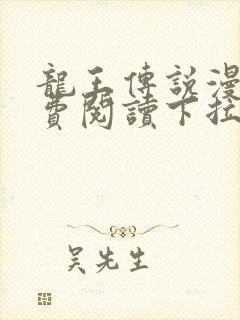 龍王傳說漫
費閱讀下拉
吳先生